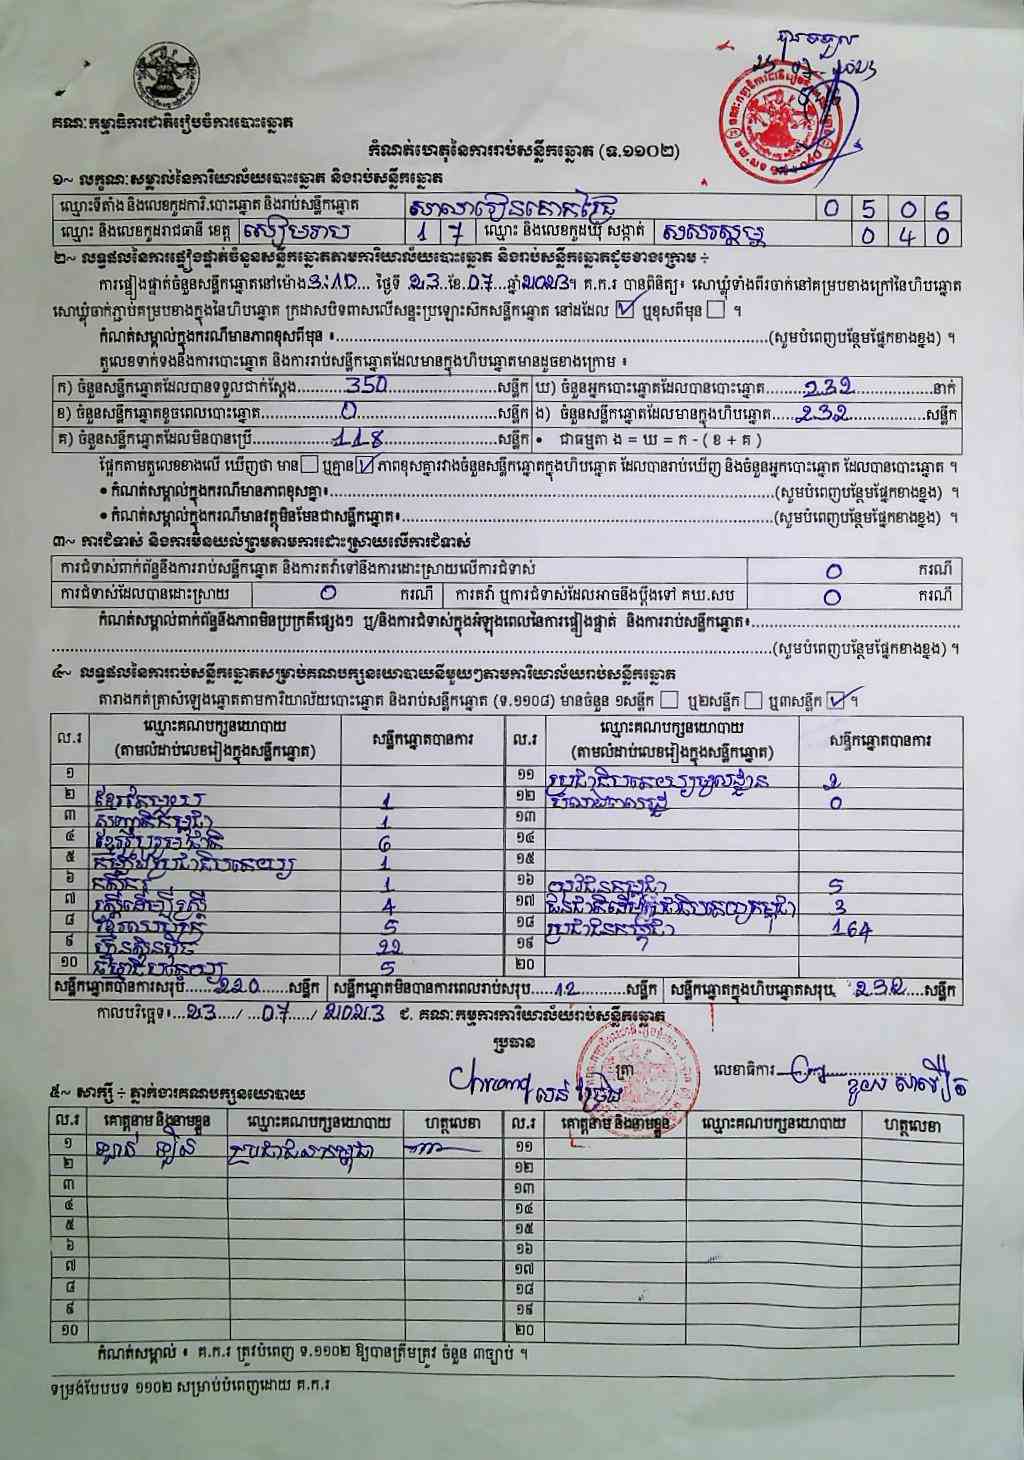 បានទទួល
23 07 2023
គណៈកម្មាធិការជាតិរៀបចំការបោះឆ្នោត
កំណត់ហេតុនៃការរាប់សន្លឹកឆ្នោត (ទ.១១០២)
១~ លក្ខណៈសម្គាល់នៃការិយាល័យបោះឆ្នោត និងរាប់សន្លឹកឆ្នោត
ឈ្មោះទីតាំង និងលេខកូដការិ.បោះឆ្នោត និងរាប់សន្លឹកឆ្នោត សាលារៀនគោកជ្រៃ 0 5 0 6
ឈ្មោះ និងលេខកូដរាជធានី ខេត្ត សៀមរាប 1 7 ឈ្មោះ និងលេខកូដឃុំ សង្កាត់ សសរស្តម្ភ 0 4 0
២~ លទ្ធផលនៃការផ្ទៀងផ្ទាត់ចំនួនសន្លឹកឆ្នោតតាមការិយាល័យបោះឆ្នោត និងរាប់សន្លឹកឆ្នោតដូចខាងក្រោម ÷
ការផ្ទៀងផ្ទាត់ចំនួនសន្លឹកឆ្នោតនៅម៉ោង 3:10 ថ្ងៃទី 23 ខែ 07 ឆ្នាំ 2023។ គ.ក.រ បានពិនិត្យ៖ សោឃ្លុំទាំងពីរចាក់នៅគម្របខាងក្រៅនៃហិបឆ្នោត
សោឃ្លុំចាក់ភ្ជាប់គម្របខាងក្នុងនៃហិបឆ្នោត ក្រដាសបិទពាសលើសន្ទះប្រឡោះស៊កសន្លឹកឆ្នោត នៅដដែល ☑ ឬខុសពីមុន ☐ ។
កំណត់សម្គាល់ក្នុងករណីមានភាពខុសពីមុន ៖ (សូមបំពេញបន្ថែមផ្នែកខាងខ្នង) ។
តួលេខទាក់ទងនឹងការបោះឆ្នោត និងការរាប់សន្លឹកឆ្នោតដែលមានក្នុងហិបឆ្នោតមានដូចខាងក្រោម ៖
ក) ចំនួនសន្លឹកឆ្នោតដែលបានទទួលជាក់ស្តែង 350 សន្លឹក ឃ) ចំនួនអ្នកបោះឆ្នោតដែលបានបោះឆ្នោត 232 នាក់
ខ) ចំនួនសន្លឹកឆ្នោតខូចពេលបោះឆ្នោត 0 សន្លឹក ង) ចំនួនសន្លឹកឆ្នោតដែលមានក្នុងហិបឆ្នោត 232 សន្លឹក
គ) ចំនួនសន្លឹកឆ្នោតដែលមិនបានប្រើ 118 សន្លឹក • ជាធម្មតា ង = ឃ = ក - ( ខ + គ )
ផ្អែកតាមតួលេខខាងលើ ឃើញថា មាន ☐ ឬគ្មាន ☑ ភាពខុសគ្នារវាងចំនួនសន្លឹកឆ្នោតក្នុងហិបឆ្នោត ដែលបានរាប់ឃើញ និងចំនួនអ្នកបោះឆ្នោត ដែលបានបោះឆ្នោត ។
• កំណត់សម្គាល់ក្នុងករណីមានភាពខុសគ្នា៖ (សូមបំពេញបន្ថែមផ្នែកខាងខ្នង) ។
• កំណត់សម្គាល់ក្នុងករណីមានវត្ថុមិនមែនជាសន្លឹកឆ្នោត៖ (សូមបំពេញបន្ថែមផ្នែកខាងខ្នង) ។
៣~ ការជំទាស់ និងការមិនយល់ព្រមតាមការដោះស្រាយលើការជំទាស់
ការជំទាស់ពាក់ព័ន្ធនឹងការរាប់សន្លឹកឆ្នោត និងការតវ៉ាទៅនឹងការដោះស្រាយលើការជំទាស់ 0 ករណី
ការជំទាស់ដែលបានដោះស្រាយ 0 ករណី ការតវ៉ា ឬការជំទាស់ដែលអាចនឹងប្តឹងទៅ គឃ.សប 0 ករណី
កំណត់សម្គាល់ពាក់ព័ន្ធនឹងភាពមិនប្រក្រតីផ្សេងៗ ឬ/និងការជំទាស់ក្នុងអំឡុងពេលនៃការផ្ទៀងផ្ទាត់ និងការរាប់សន្លឹកឆ្នោត៖
(សូមបំពេញបន្ថែមផ្នែកខាងខ្នង) ។
៤~ លទ្ធផលនៃការរាប់សន្លឹកឆ្នោតសម្រាប់គណបក្សនយោបាយនីមួយៗតាមការិយាល័យរាប់សន្លឹកឆ្នោត
តារាងកត់ត្រាសំឡេងឆ្នោតតាមការិយាល័យបោះឆ្នោត និងរាប់សន្លឹកឆ្នោត (ទ.១១០៨) មានចំនួន ១សន្លឹក ☐ ឬ២សន្លឹក ☐ ឬ៣សន្លឹក ☑ ។
ល.រ ឈ្មោះគណបក្សនយោបាយ (តាមលំដាប់លេខរៀងក្នុងសន្លឹកឆ្នោត) សន្លឹកឆ្នោតបានការ ល.រ ឈ្មោះគណបក្សនយោបាយ (តាមលំដាប់លេខរៀងក្នុងសន្លឹកឆ្នោត) សន្លឹកឆ្នោតបានការ
១ ១១ ប្រជាធិបតេយ្យមូលដ្ឋាន 2
២ ខ្មែរតែមួយ 1 ១២ បំលាស់ពលរដ្ឋ 0
៣ សញ្ជាតិកម្ពុជា 1 ១៣
៤ ខ្មែររួបរួមជាតិ 6 ១៤
៥ កម្លាំងប្រជាធិបតេយ្យ 1 ១៥
៦ កសិករ 1 ១៦ យុវជនកម្ពុជា 5
៧ ស្ត្រីដើម្បីស្ត្រី 4 ១៧ ជនជាតិដើមប្រជាធិបតេយ្យកម្ពុជា 3
៨ ខ្មែរឈប់ក្រ 5 ១៨ ប្រជាជនកម្ពុជា 164
៩ ហ៊្វុនស៊ិនប៉ិច 22 ១៩
១០ ធម្មាធិបតេយ្យ 5 ២០
សន្លឹកឆ្នោតបានការសរុប 220 សន្លឹក សន្លឹកឆ្នោតមិនបានការពេលរាប់សរុប 12 សន្លឹក សន្លឹកឆ្នោតក្នុងហិបឆ្នោតសរុប 232 សន្លឹក
កាលបរិច្ឆេទ៖ 23 / 07 / 2023 ជ. គណៈកម្មការការិយាល័យរាប់សន្លឹកឆ្នោត
ប្រធាន
ត្រា លេខាធិការ
Chrong
៥~ សាក្សី ÷ ភ្នាក់ងារគណបក្សនយោបាយ
ល.រ គោត្តនាម និងនាមខ្លួន ឈ្មោះគណបក្សនយោបាយ ហត្ថលេខា ល.រ គោត្តនាម និងនាមខ្លួន ឈ្មោះគណបក្សនយោបាយ ហត្ថលេខា
១ ប្រជាជនកម្ពុជា ១១
២ ១២
៣ ១៣
៤ ១៤
៥ ១៥
៦ ១៦
៧ ១៧
៨ ១៨
៩ ១៩
១០ ២០
កំណត់សម្គាល់ ៖ គ.ក.រ ត្រូវបំពេញ ទ.១១០២ ឱ្យបានត្រឹមត្រូវ ចំនួន ៣ច្បាប់ ។
ទម្រង់បែបបទ ១១០២ សម្រាប់បំពេញដោយ គ.ក.រ